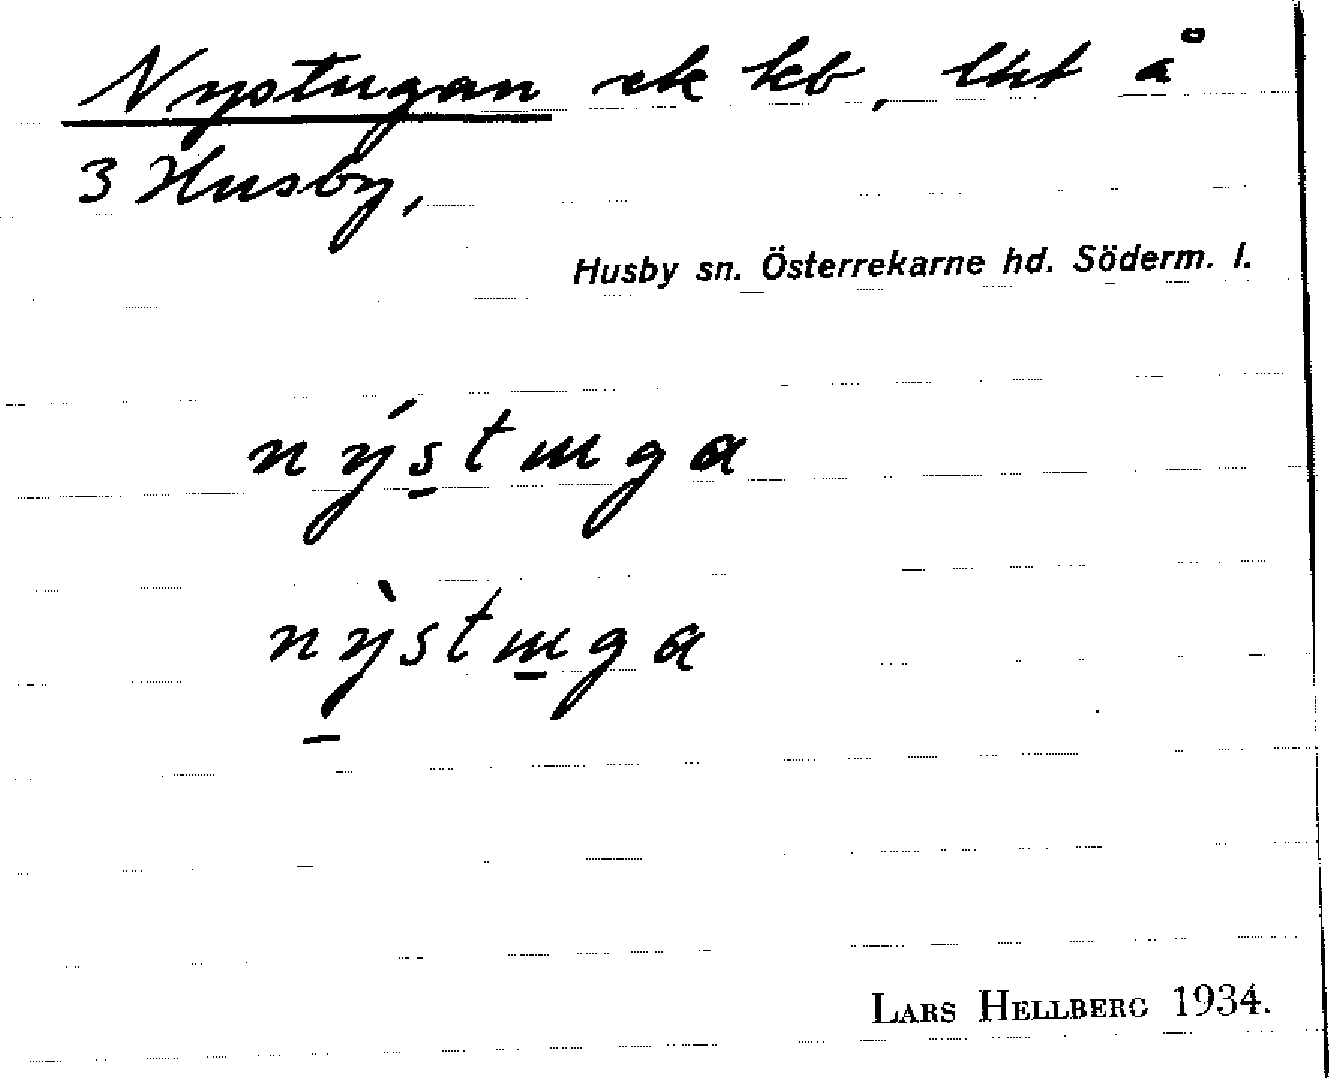 Nystugan ek kb, lht å
3 Husby,
Husby sn. Österrekarne hd. Söderm. l.
nýs̱tɯga
ṉỳstɯ̱ga
LARS HELLBERG 1934.